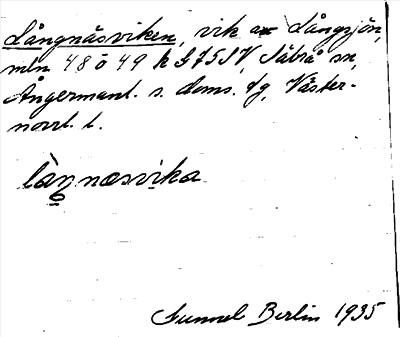 Långnäsviken, vik av Långsjön,
mln 48 o 49 k G75SV, Säbrå sn,
Ångermanl. s. doms. fg, Väster-
norrl. l.
làŋnæsvika
Gunnel Berlin 1935